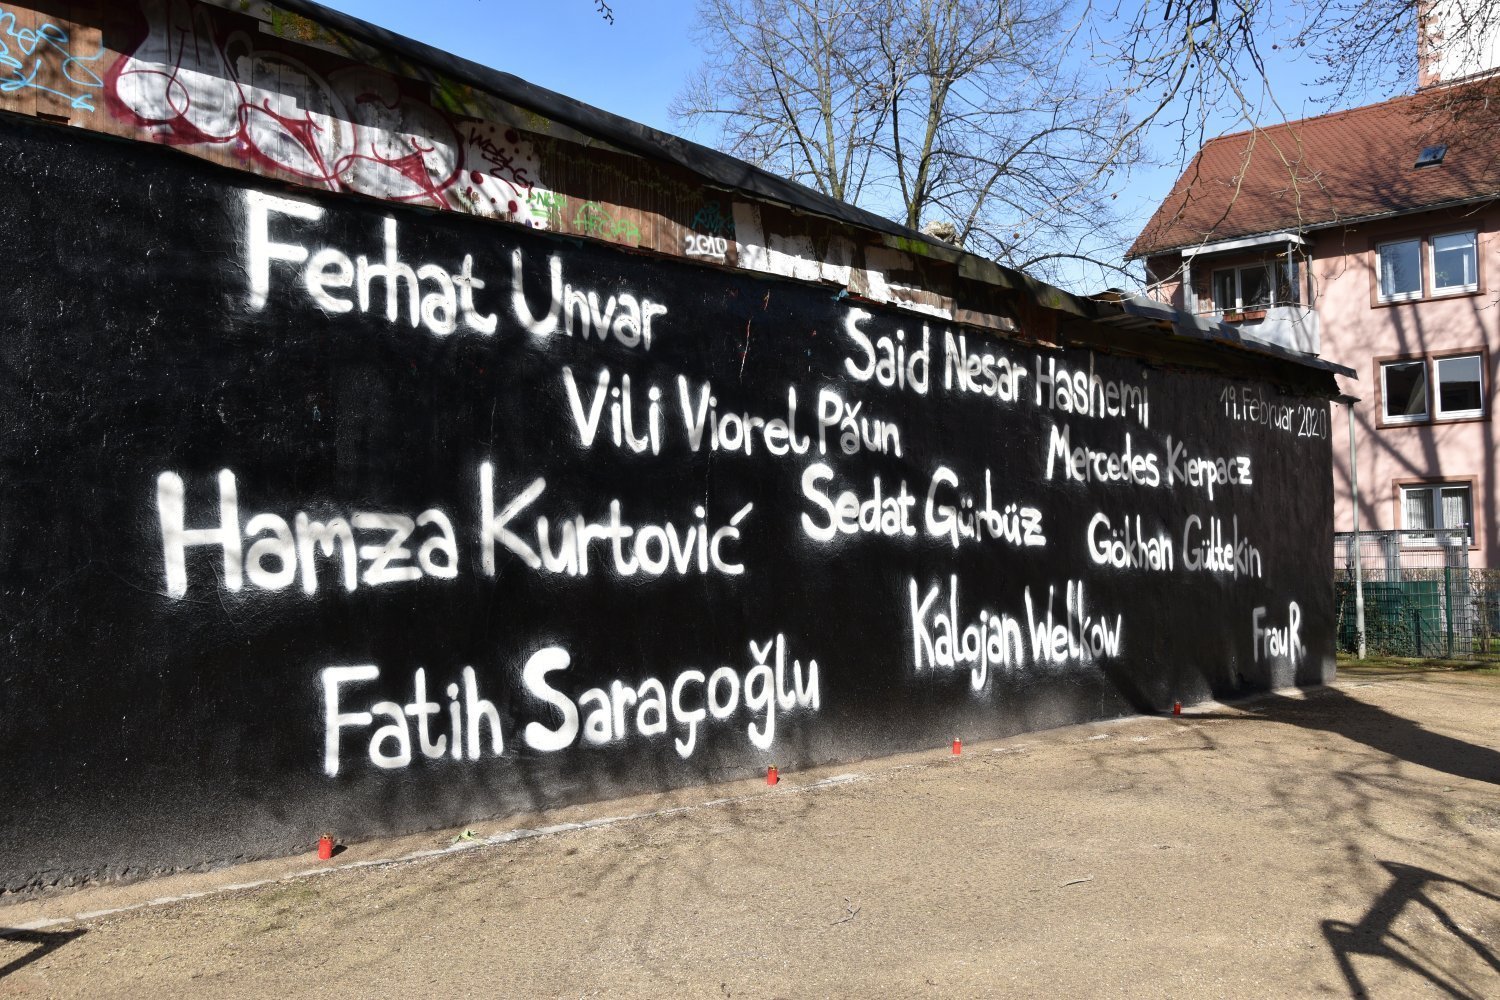 2010
Ferhat Unvar
Said Nesar Hashemi
19. Februar 2020
Vili Viorel Păun
Mercedes Kierpacz
Hamza Kurtović
Sedat Gürbüz
Gökhan Gültekin
Kalojan Welkow
Frau R.
Fatih Saraçoğlu